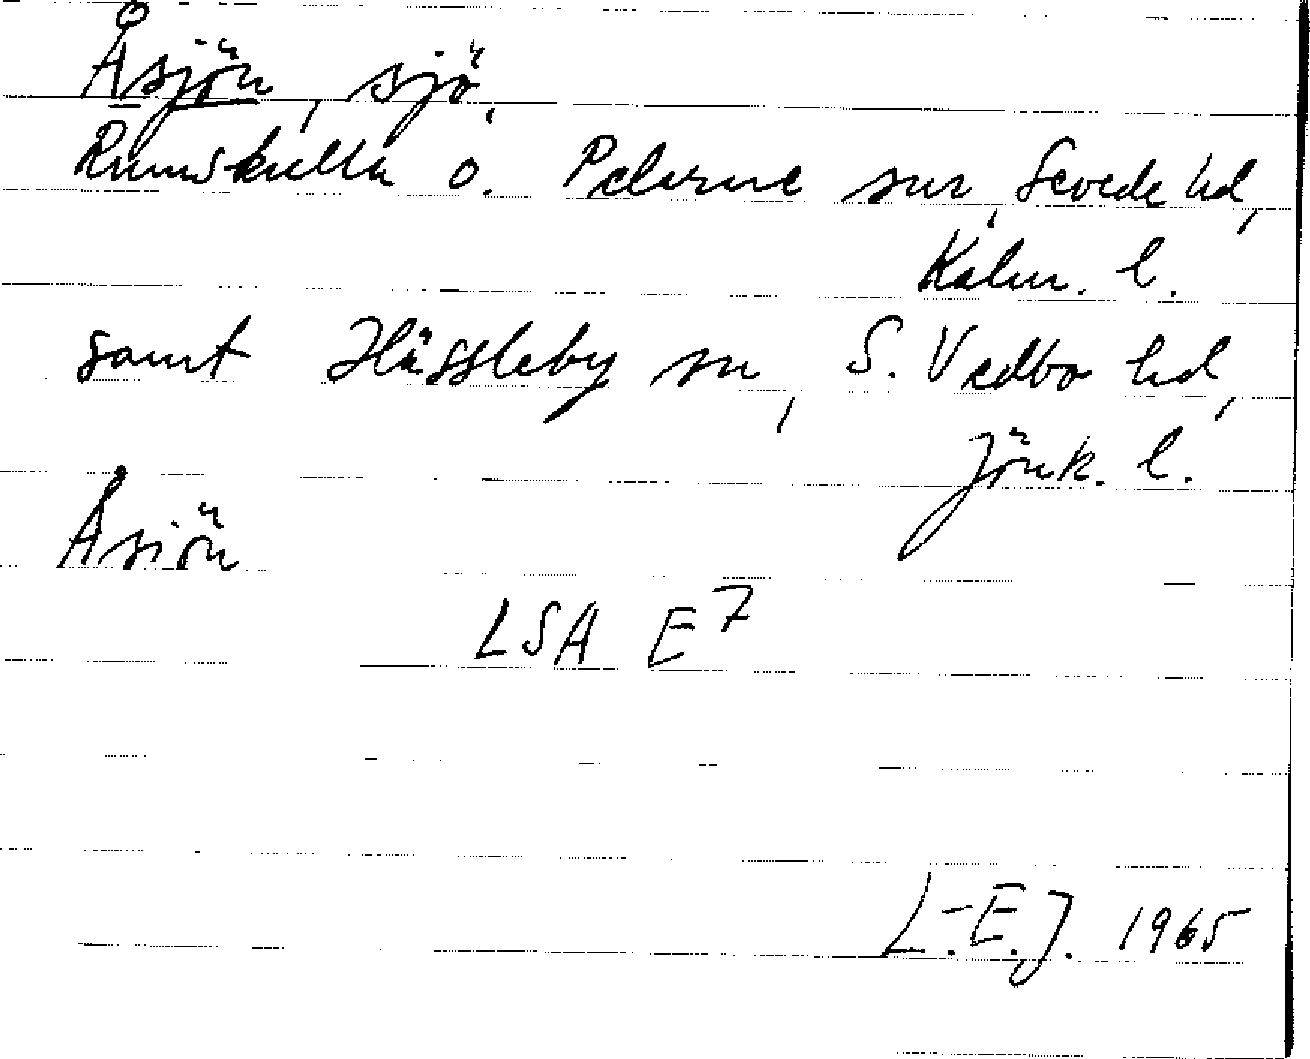 Åsjön, sjö,
Rumskulla o. Pelarne snr, Sevede hd,
Kalm. l.
samt Hässleby sn, S. Vedbo hd,
Jönk. l.
Åsiön
LSA E7
L.-E.J. 1965